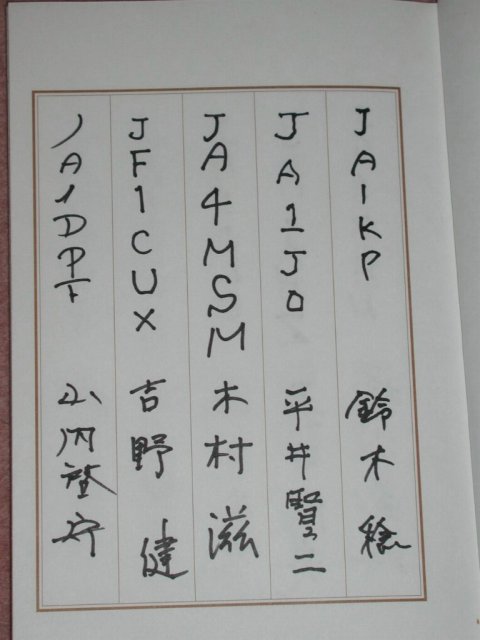 JA1KP 鈴木 稔
JA1JO 平井賢二
JA4MSM 木村 滋
JF1CUX 吉野 健
JA1DPT 小内